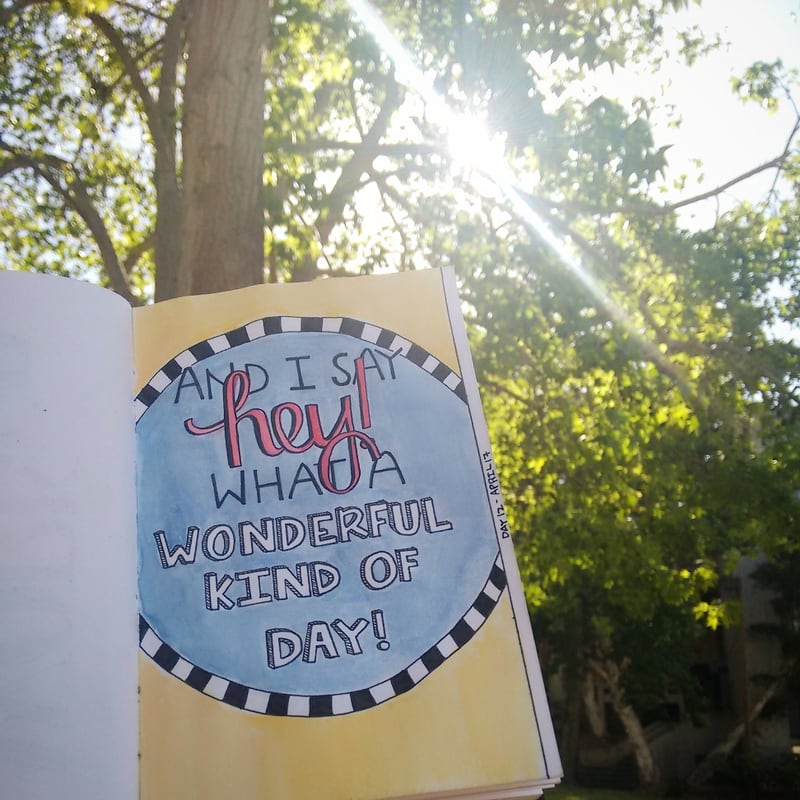 AND I SAY
hey!
WHAT A
WONDERFUL
KIND OF
DAY!
DAY 12 - APRIL 17